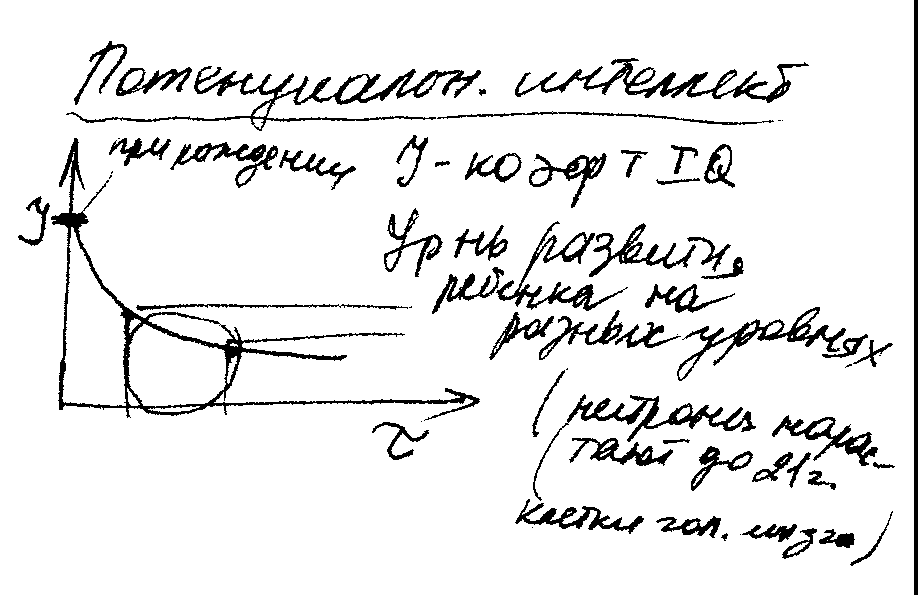 Потенциалон. интеллект
при рождении
У - коэфт IQ
У
Урнь развития
ребёнка на
разных уровнях
τ
(нейроны нарас-
тают до 21 г.
клетки гол. мозга)